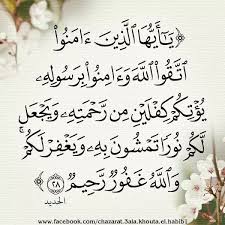 ﴿يَـٰٓأَيُّهَا ٱلَّذِينَ ءَامَنُوا۟
ٱتَّقُوا۟ ٱللَّهَ وَءَامِنُوا۟ بِرَسُولِهِۦ
يُؤْتِكُمْ كِفْلَيْنِ مِن رَّحْمَتِهِۦ وَيَجْعَل
لَّكُمْ نُورًا تَمْشُونَ بِهِۦ وَيَغْفِرْ لَكُمْ ۚ
وَٱللَّهُ غَفُورٌ رَّحِيمٌ ٢٨﴾
الحديد
www.facebook.com/chazarat.3ala.khouta.el.habib1